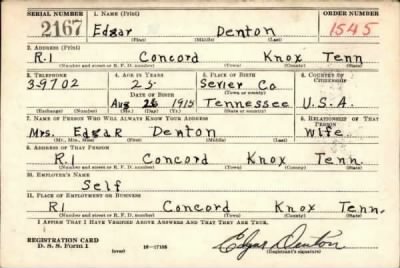 SERIAL NUMBER 1. NAME (Print) ORDER NUMBER
2167 Edgar Denton 1545
(First) (Middle) (Last)
2. ADDRESS (Print)
R.1 Concord Knox Tenn
(Number and street or R. F. D. number) (Town) (County) (State)
3. TELEPHONE 4. AGE IN YEARS 5. PLACE OF BIRTH 6. COUNTRY OF CITIZENSHIP
39702 25 Sevier Co.
DATE OF BIRTH (Town or county)
Aug 26 1915 Tennessee U.S.A.
(Exchange) (Number) (Mo.) (Day) (Yr.) (State or country)
7. NAME OF PERSON WHO WILL ALWAYS KNOW YOUR ADDRESS 8. RELATIONSHIP OF THAT PERSON
Mrs. Edgar Denton Wife
(Mr., Mrs., Miss) (First) (Middle) (Last)
9. ADDRESS OF THAT PERSON
R1 Concord Knox Tenn.
(Number and street or R. F. D. number) (Town) (County) (State)
10. EMPLOYER'S NAME
Self
11. PLACE OF EMPLOYMENT OR BUSINESS
R1 Concord Knox Tenn.
(Number and street or R. F. D. number) (Town) (County) (State)
I AFFIRM THAT I HAVE VERIFIED ABOVE ANSWERS AND THAT THEY ARE TRUE.
REGISTRATION CARD
D. S. S. Form 1 (over) 16—17105 Edgar Denton
(Registrant's signature)